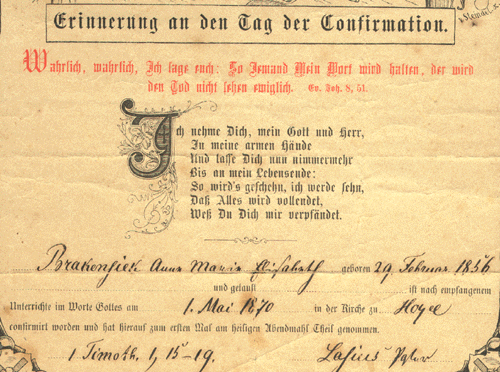 Erinnerung an den Tag der Confirmation.
Wahrlich, wahrlich, Ich sage euch: So Jemand Mein Wort wird halten, der wird
den Tod nicht sehen ewiglich. Ev. Joh. 8, 51.
Ich nehme Dich, mein Gott und Herr,
In meine armen Hände
Und lasse Dich nun nimmermehr
Bis an mein Lebensende:
So wird's geschehn, ich werde sehn,
Daß Alles wird vollendet,
Weß Du Dich mir verpfändet.
Brakensiek Anna Marie Elisabeth geboren 29 Februar 1856
und getauft ist nach empfangenem
Unterrichte im Worte Gottes am 1. Mai 1870 in der Kirche zu Hoyel
confirmirt worden und hat hierauf zum ersten Mal am heiligen Abendmahl Theil genommen.
1 Timoth. 1, 15-19. Lasius